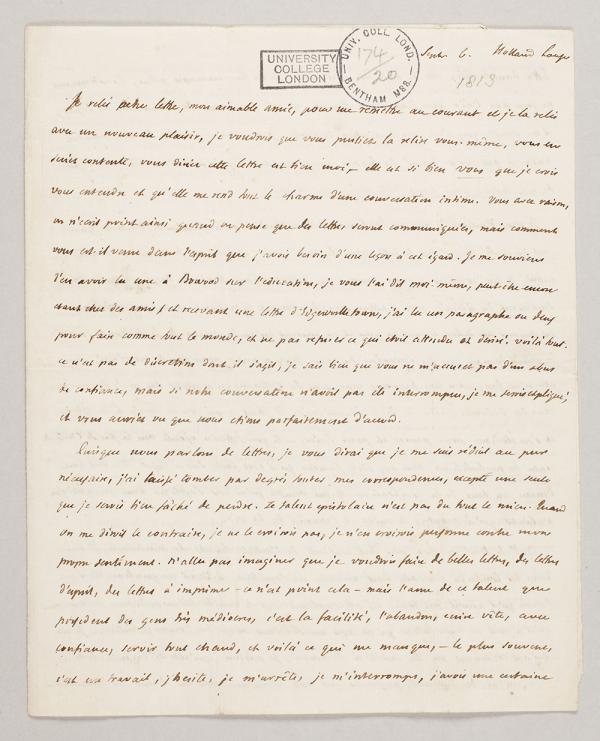 UNIVERSITY
COLLEGE
LONDON
UNIV. COLL. LOND.
174/20
BENTHAM MSS.
6. Holland house
1813
Je relis votre lettre, mon aimable amie, pour me remettre au courant et je la relis
avec un nouveau plaisir, je voudrois que vous pussiez la relire vous-même, vous en
seriez contente, vous diriez cette lettre est bien moi, – elle est si bien vous que je crois
vous entendre et qu'elle me rend tout le charme d'une conversation intime. Vous avez raison,
on n'écrit point ainsi quand on pense que des lettres seront communiquées, mais comment
vous est-il venu dans l'esprit que j'avois besoin d'une leçon à cet égard. Je me souviens
d'en avoir lu une à Bowood sur l'éducation, je vous l'ai dit moi-même, peut être encore
étant chez des amis et recevant une lettre d'Edgeworthtown, j'ai lu un paragraphe ou deux
pour faire comme tout le monde, et ne pas refuser ce qui étoit attendu et désiré. voilà tout.
ce n'est pas de discretion dont il s'agit, je sais bien que vous ne m'accusez pas d'un abus
de confiance, mais si notre conversation n'avoit pas été interrompue, je me serois expliqué,
et vous auriez vu que nous étions parfaitement d'accord.
Puisque nous parlons de lettres, je vous dirai que je me suis réduit au pur
nécessaire, j'ai laissé tomber par degrés toutes mes correspondences, excepté une seule
que je serois bien fâché de perdre. Le talent épistolaire n'est pas du tout le mien. Quand
on me diroit le contraire, je ne le croirois pas, je n'en croirois personne contre mon
propre sentiment. N'allez pas imaginer que je voudrois faire de belles lettres, des lettres
d'esprit, des lettres à imprimer – ce n'est point cela – mais l'ame de ce talent que
possedent des gens très médiocres, c'est la facilité, l'abandon, ecrire vite, avec
confiance, servir tout chaud, et voilà ce qui me manque, – le plus souvent,
c'est un travail, j'hésite, je m'arrête, je m'interromps, j'avois une certaine